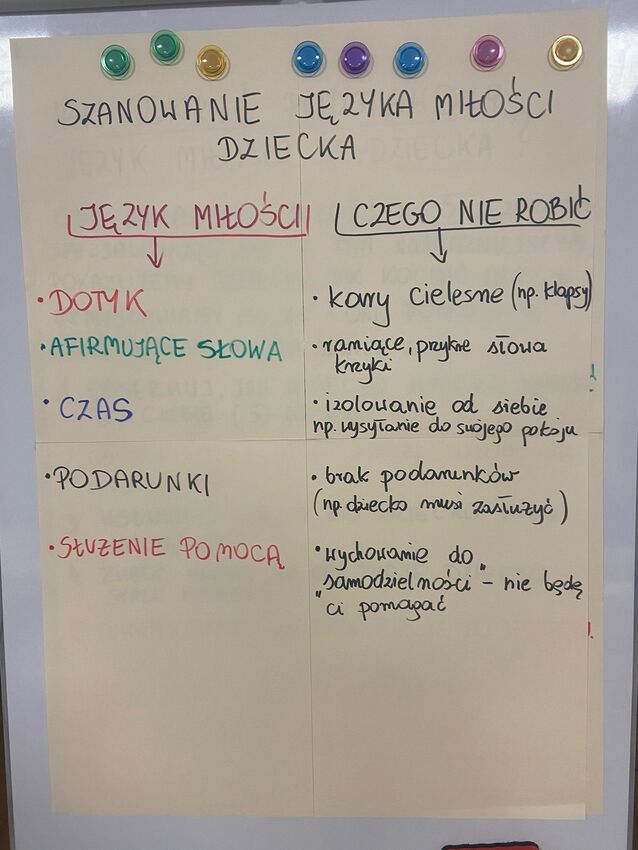 SZANOWANIE JĘZYKA MIŁOŚCI
DZIECKA
JĘZYK MIŁOŚCI
CZEGO NIE ROBIĆ
• DOTYK
• kary cielesne (np. klapsy)
• AFIRMUJĄCE SŁOWA
• raniące, przykre słowa
krzyki
• CZAS
• izolowanie od siebie
np. wysyłanie do swojego pokoju
• PODARUNKI
• brak podarunków
(np. dziecko musi zasłużyć)
• SŁUŻENIE POMOCĄ
• wychowanie do „
„samodzielności – nie będę
ci pomagać